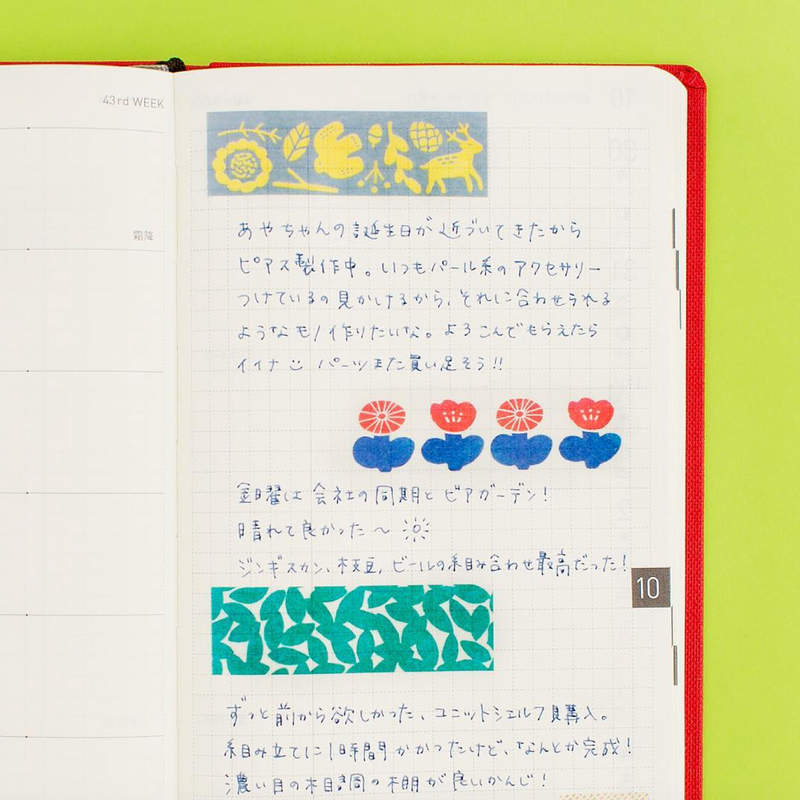 43rd WEEK
霜降
あやちゃんの誕生日が近づいてきたから
ピアス製作中。いつもパール系のアクセサリー
つけているの見かけるから、それに合わせられる
ようなモノ作りたいな。よろこんでもらえたら
イイナ パーツまた買い足そう!!
金曜は会社の同期とビアガーデン!
晴れて良かった〜
ジンギスカン、枝豆、ビールの組み合わせ最高だった!
10
ずっと前から欲しかった、ユニットシェルフ購入。
組み立てに1時間かかったけど、なんとか完成!
濃い目の木目調の棚が良いかんじ!